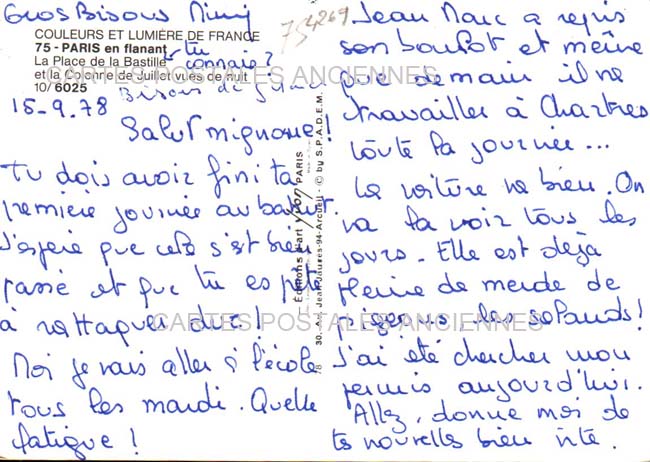 Gros Bisous Mimi
COULEURS ET LUMIÈRE DE FRANCE
75 - PARIS en flanant
La Place de la Bastille
et la Colonne de Juillet vues de nuit
10/ 6025
tu
connais ?
Bisous de
75 4269
15-9.78
Salut mignonne !
Tu dois avoir fini ta
première journée au bahut.
J'espère que cela s'est bien
passé et que tu es prête
à rattaquer dur !
Moi je vais aller à l'école
tous les mardi. Quelle
fatigue !
Editions d'art Yvon PARIS
30, Av. Jean-Jaurès-94-Arcueil - © by S.P.A.D.E.M.
Jean Marc a repris
son boulot et même
que demain il va
travailler à Chartres
toute la journée...
La voiture va bien. On
va la voir tous les
jours. Elle est déjà
pleine de merde de
pigeons, les salauds !
J'ai été chercher mon
permis aujourd'hui.
Allez, donne moi de
tes nouvelles bien vite.
CARTES POSTALES ANCIENNES
CARTES POSTALES ANCIENNES